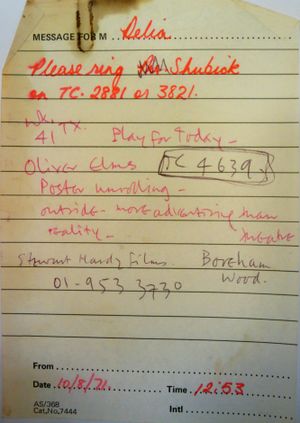 MESSAGE FOR M . . Delia
Please ring Mr Shubik
on TC. 2881 or 3821.
Wk. TX.
41 Play for Today –
Oliver Elmes TC 4639
Poster unrolling –
outside – more advertising than
reality – theatre
Stewart Hardy Films. Boreham
Wood.
01-953 3730
From
Date 10/8/71. Time 12.53
AS/368
Cat,No,7444 Intl